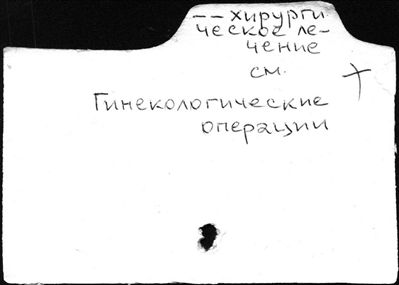 -- хирурги
ческое ле-
чение
см.
Гинекологические
операции